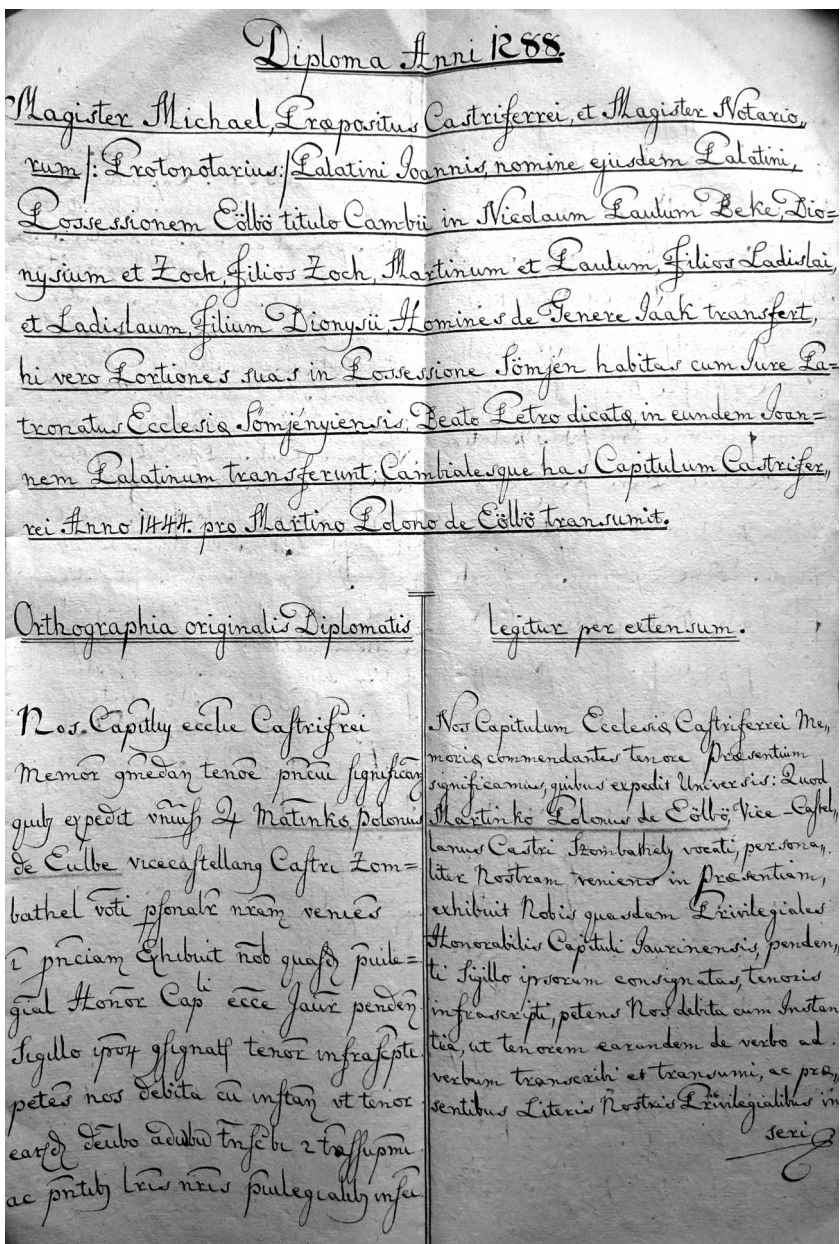 Diploma Anni 1288.
Magister Michael, Præpositus Castriferrei, et Magister Notario„
rum /: Protonotarius :/ Palatini Joannis, nomine ejusdem Palatini,
Possessionem Eölbö titulo Cambii in Nicolaum Paulum Beke, Dio=
nysium et Zoch, filios Zoch, Martinum et Paulum, filios Ladislai,
et Ladislaum, filium Dionysii, Homines de Genere Jáák transfert,
hi vero Portiones suas in Possessione Sömjén habitas cum Jure Pa=
tronatus Ecclesiæ Sömjényiensis, Beato Petro dicatæ, in eundem Joan=
nem Palatinum transferunt; Cambialesque has Capitulum Castrifer„
rei Anno 1444. pro Martino Polono de Eölbö transumit.
Orthographia originalis Diplomatis
Nos. Capitlŋ eccłie Castrifrei
Memor̄ gm̄edan̄ tenōe pn̄ciū significan̄
quibꝫ expedit vn̄iūſ ꝙ Mātinko polonus
de Eulbe vicecastellanꝫ Castri Zom=
bathel vōti pſonalr̄ nrām veniēs
ī pn̄ciam Exhibuit nōb quaſdꝫ puile=
giāl Honōr Capli ecce Jaur̄ penden̄
Sigillo ip̄oꝝ gſignatſ tenor̄ infraſcpti
petēs nos debita cū inſtan̄ vt tenor
earſdꝫ dēubo adubū trn̄ſcbi 2 trāſſupmi
ac pn̄tibꝫ lrīs nrīs puilegialibꝫ inſei
legitur per extensum.
Nos Capitulum Ecclesiæ Castriferrei Me„
moriæ commendantes tenore Præsentium
significamus, quibus expedit Universis: Quod
Martinko Polonus de Eölbö, Vice-Castel„
lanus Castri Szombathely vocati, persona„
liter Nostram veniens in Præsentiam,
exhibuit Nobis quasdam Privilegiales
Honorabilis Capituli Jaurinensis, penden„
ti Sigillo ipsorum consignatas, tenoris
infrascripti, petens Nos debita cum Instan
tia, ut tenorem earundem de verbo ad
verbum transcribi et transumi, ac præ„
sentibus Literis Nostris Privilegialibus in
seri